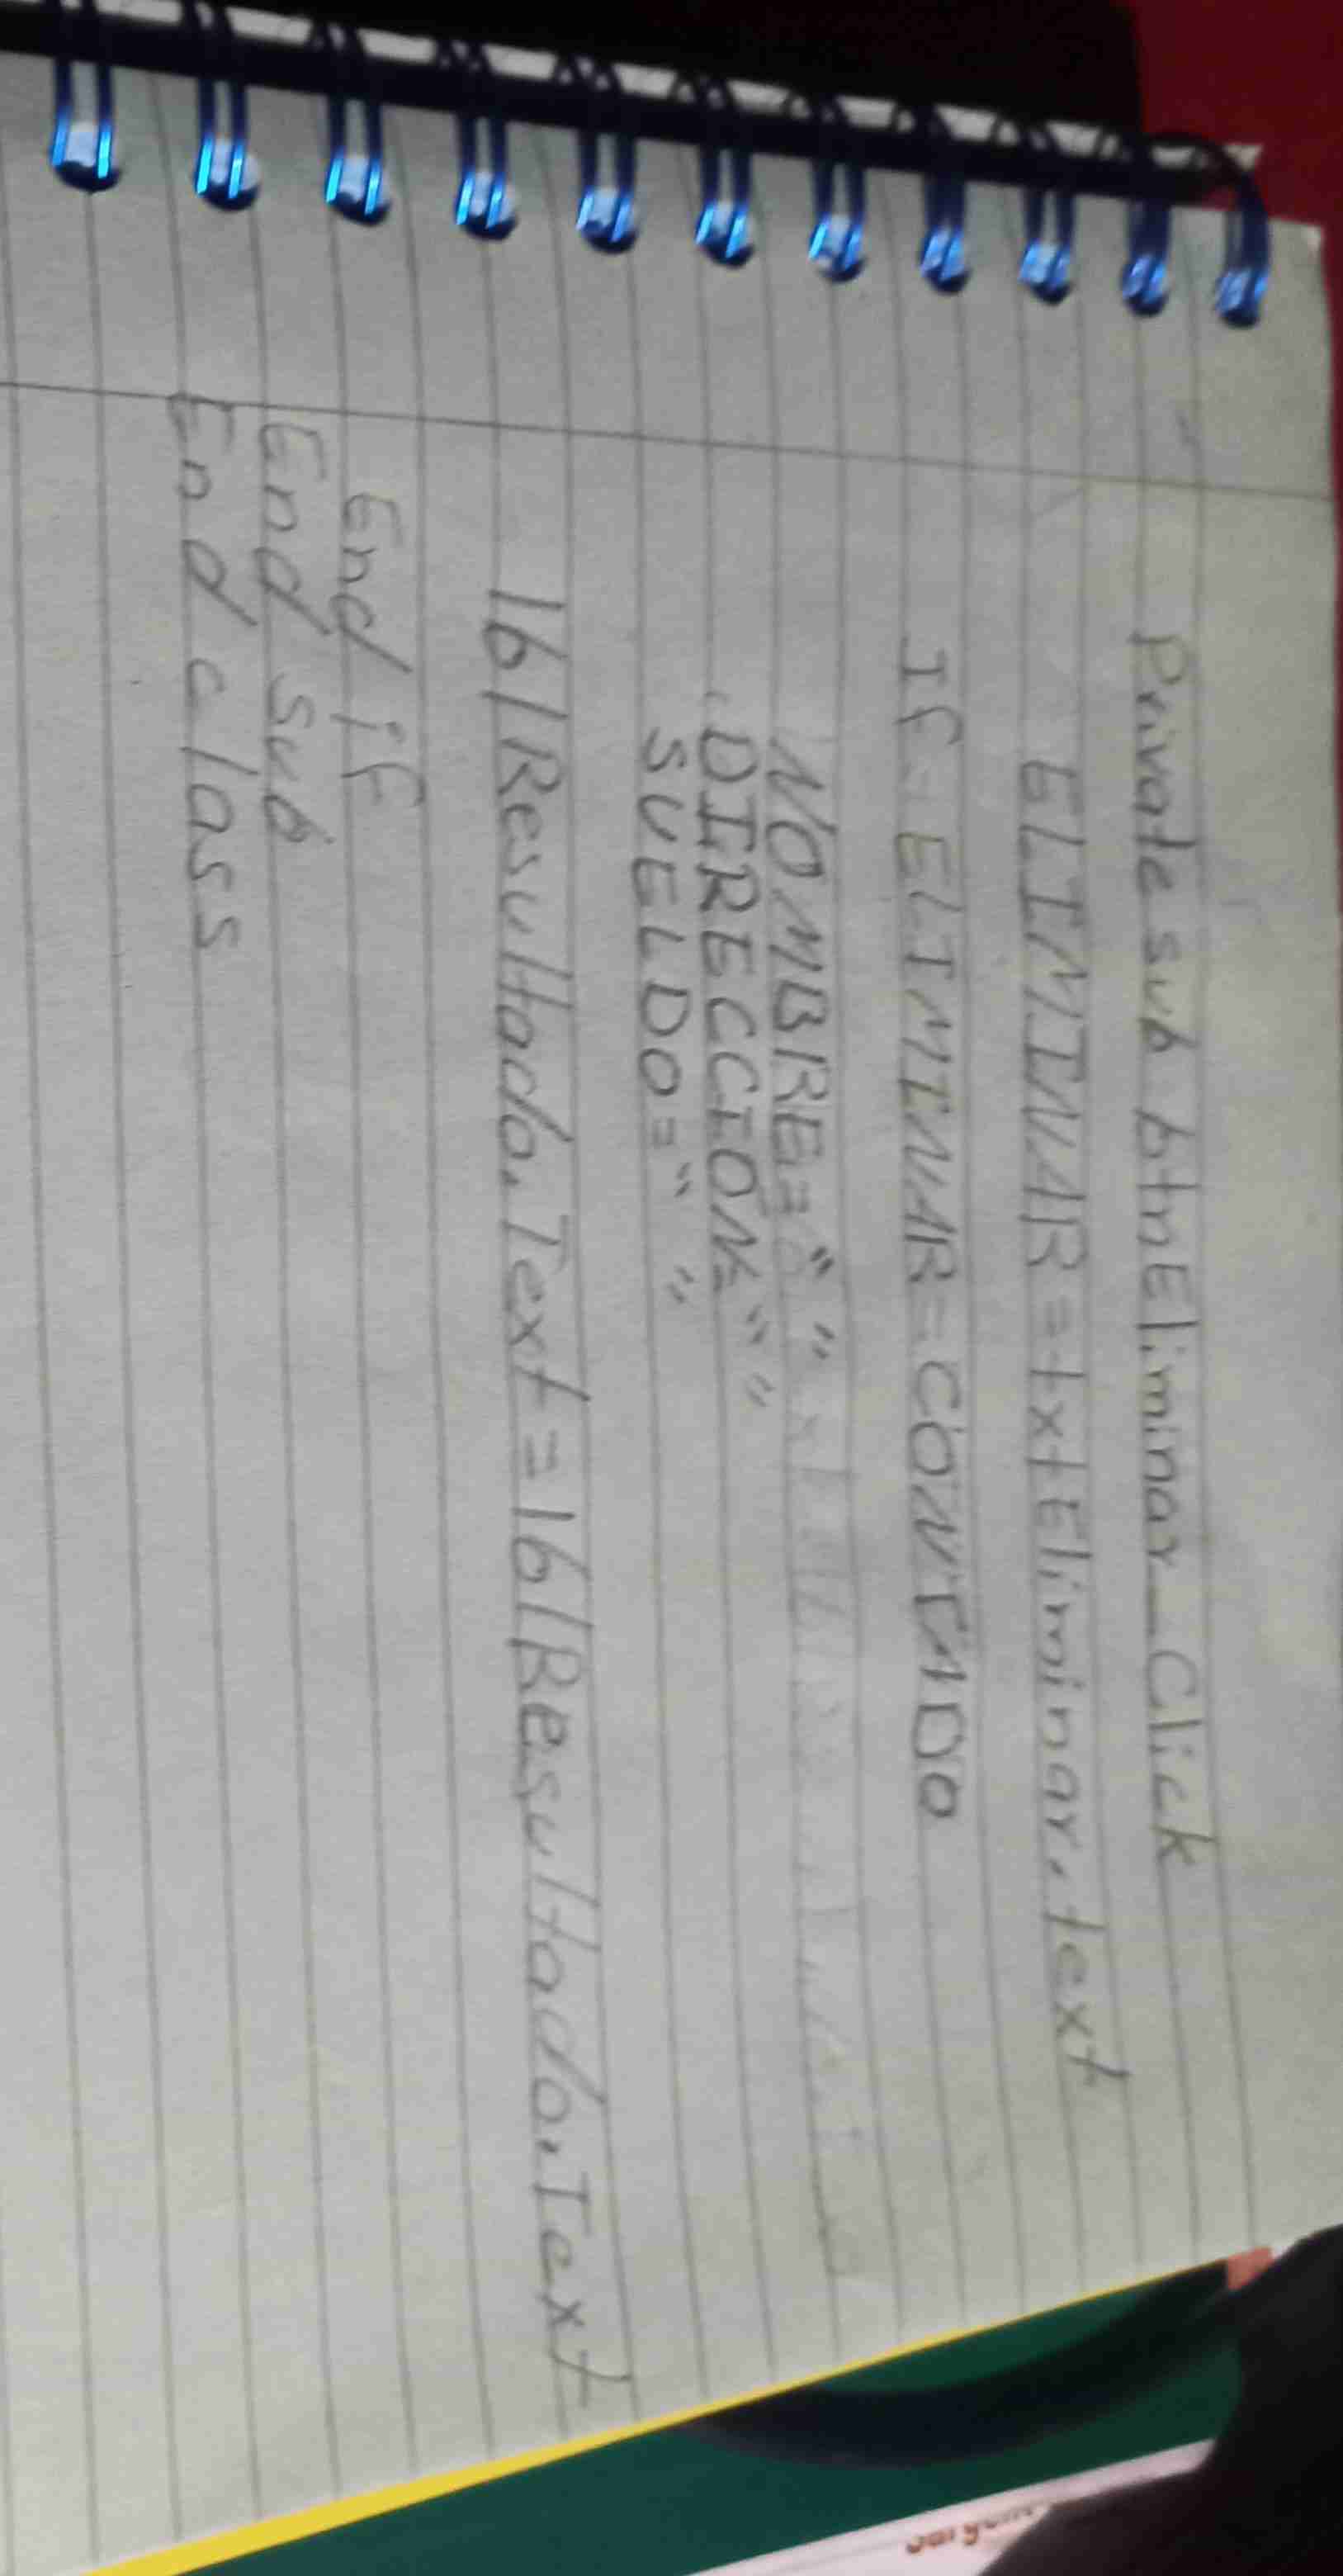 Private sub btnEliminar_Click
ELIMINAR = txtEliminar.text
If = ELIMINAR = CONTADO
NOMBRE = " "
DIRECCION = " "
SUELDO = " "
lblResultado.Text = lblResultado.Text
End if
End sub
End class